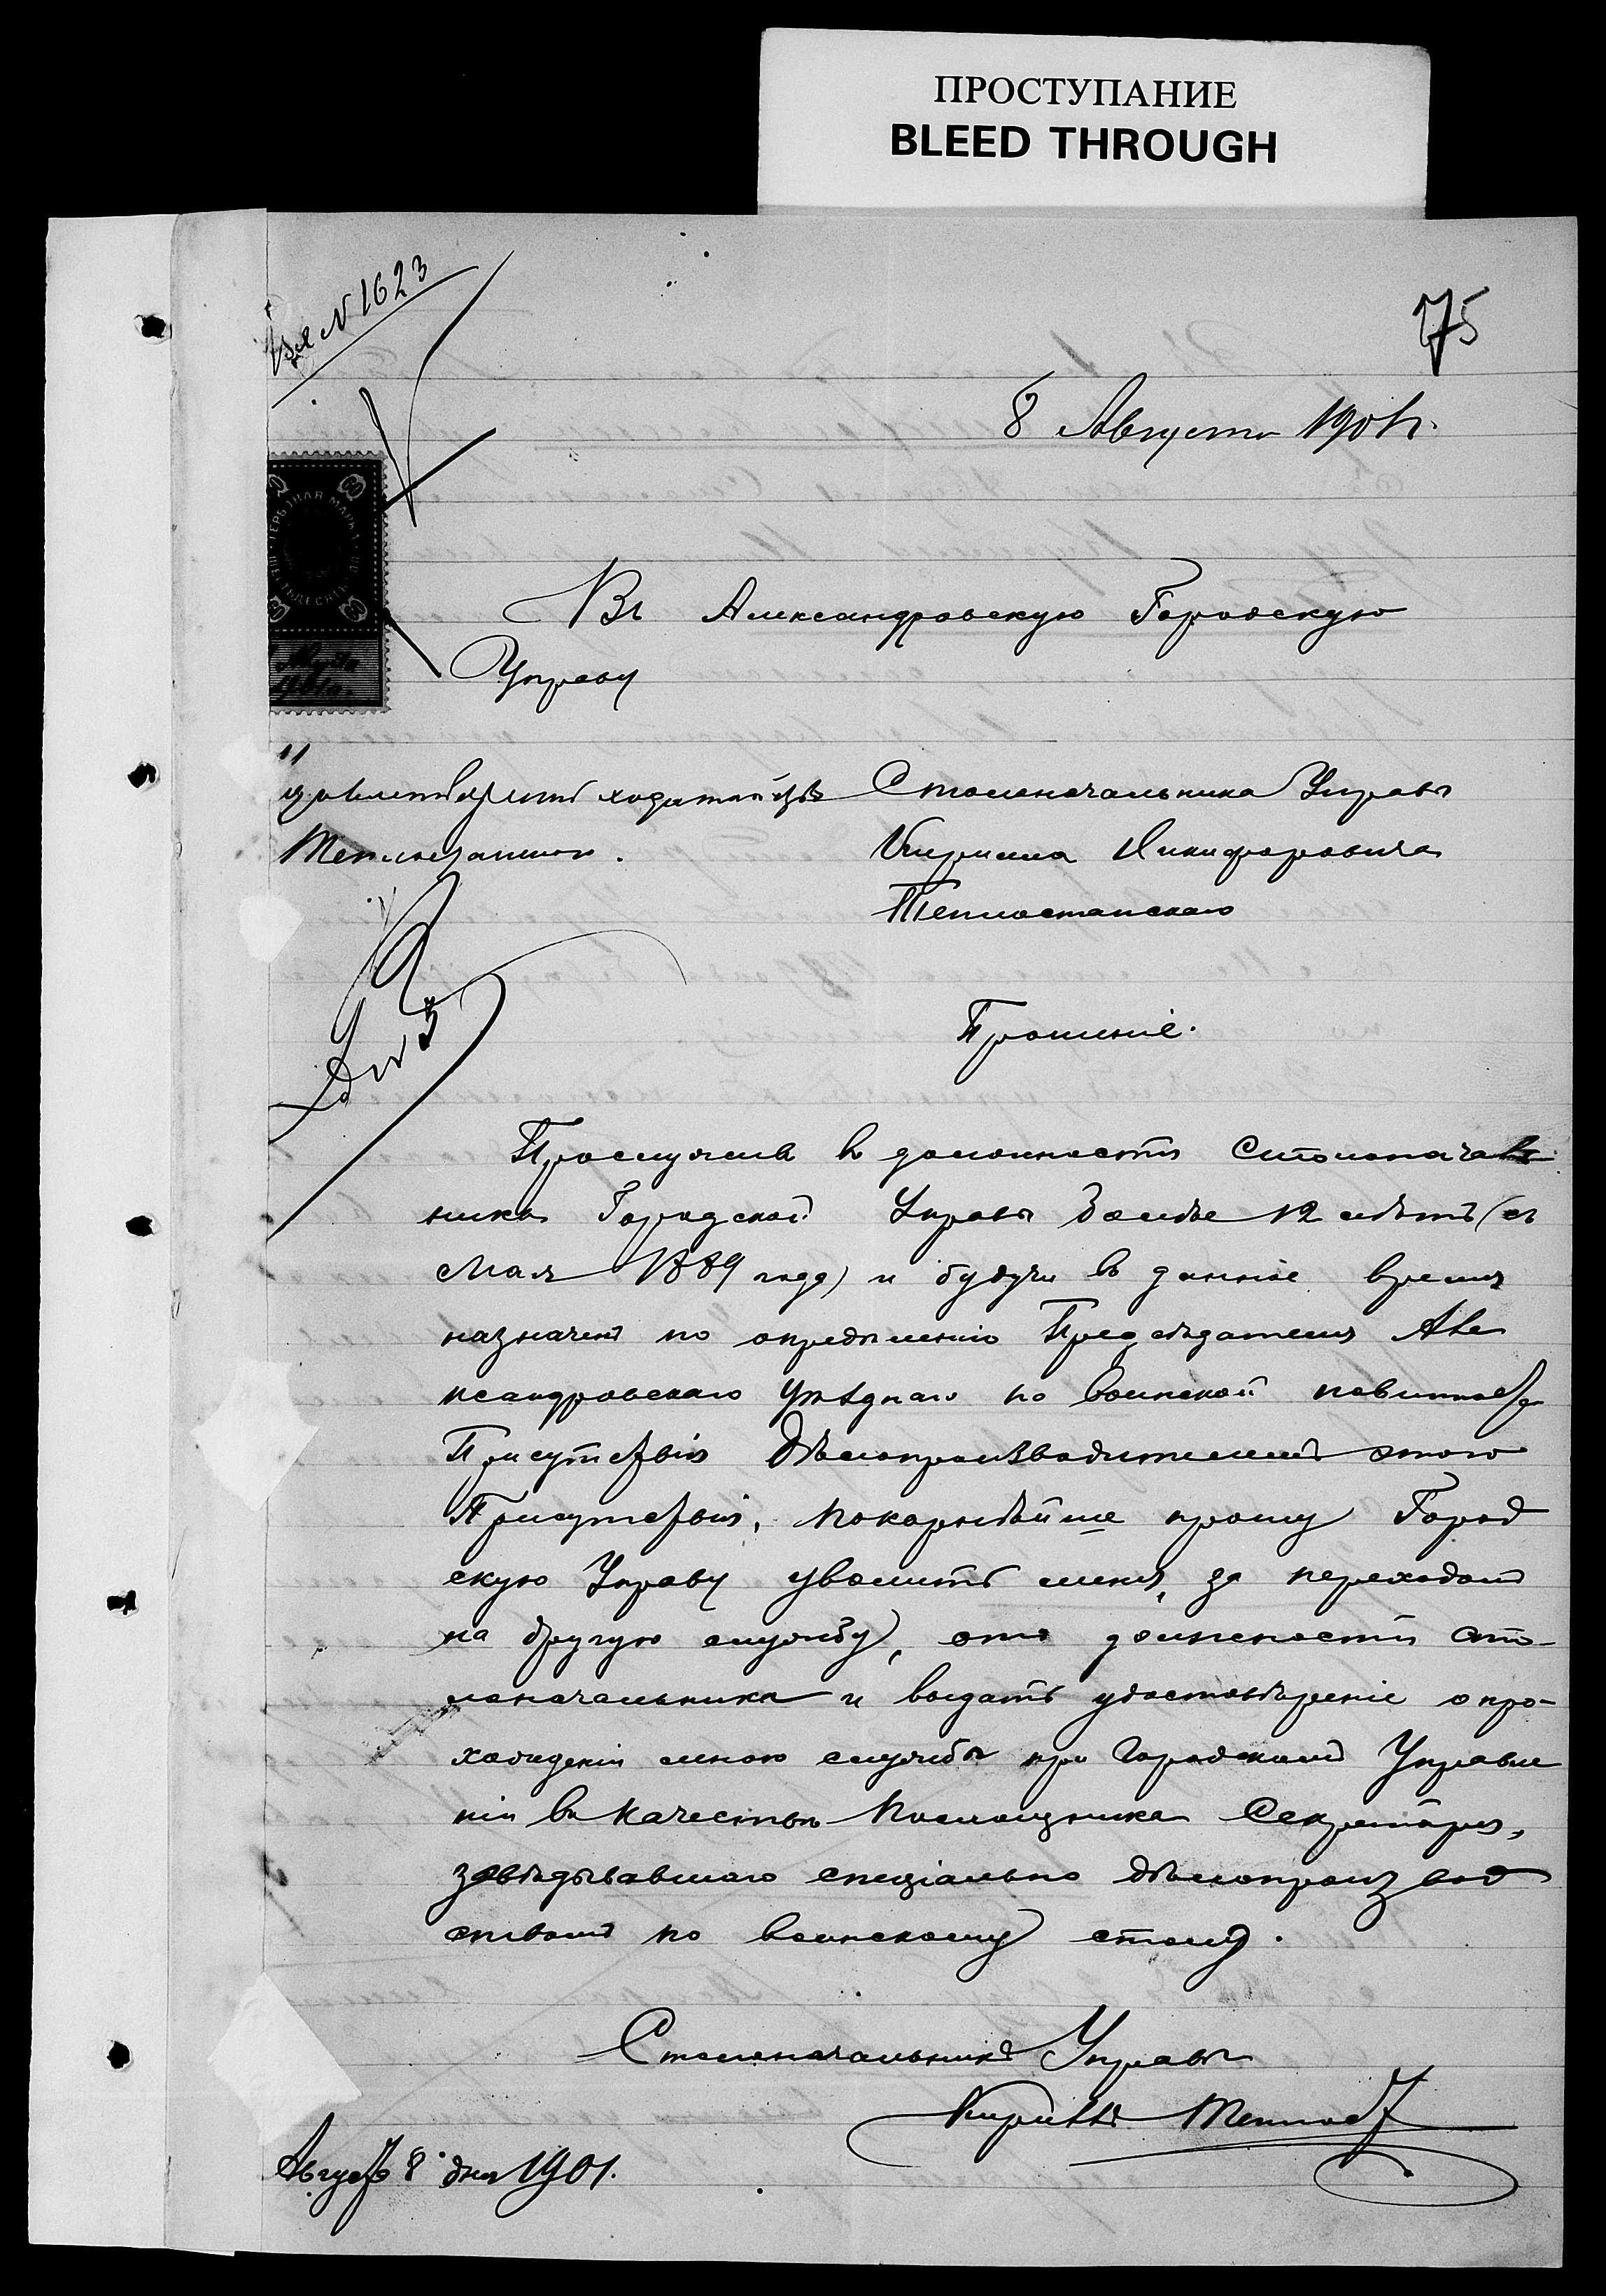 ПРОСТУПАНИЕ
BLEED THROUGH
Вх N 1623
75
8 Августа 1901 г.
Въ Александровскую Городскую
Управу
Столоначальника Управы
Кирилла Никифоровича
Теплостанскаго
удовлетворить ходатайство
Прошеніе.
Прослуживъ въ должности Столоначаль
ника Городской Управы более 12 лѣтъ (съ
Мая 1889 года) и будучи въ данное время
назначенъ по опредѣленію Предсѣдателя Але
ксандровскаго Уѣзднаго по воинской повинности
Присутствія Дѣлопроизводителемъ этого
Присутствія, покорнѣйше прошу Город
скую Управу уволить меня, за переходомъ
на другую службу, отъ должности сто-
лоначальника и выдать удостовѣреніе о про-
хожденіи мною службы при Городскомъ Управле
ніи въ качествѣ Помощника Секретаря,
завѣдывавшаго спеціально дѣлопроизвод
ствомъ по воинскому столу.
Столоначальникъ Управы
Кириллъ Теплост
Августа 8 дня 1901.